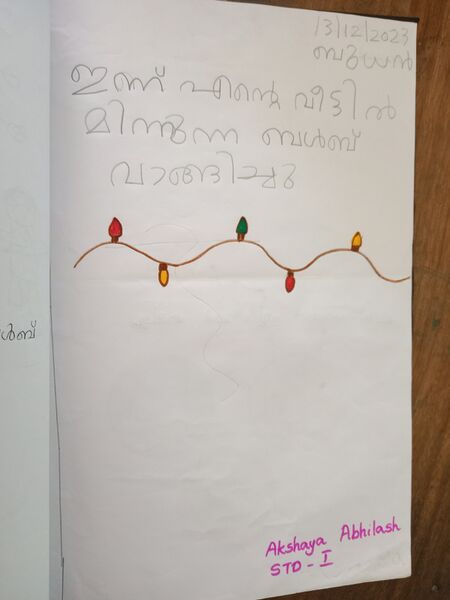 13/12/2023
ബുധൻ
ഇന്ന് എന്റെ വീട്ടിൽ
മിന്നുന്ന ബൾബ്
വാങ്ങിച്ചു
ൾബ്
Akshaya Abhilash
STD - I